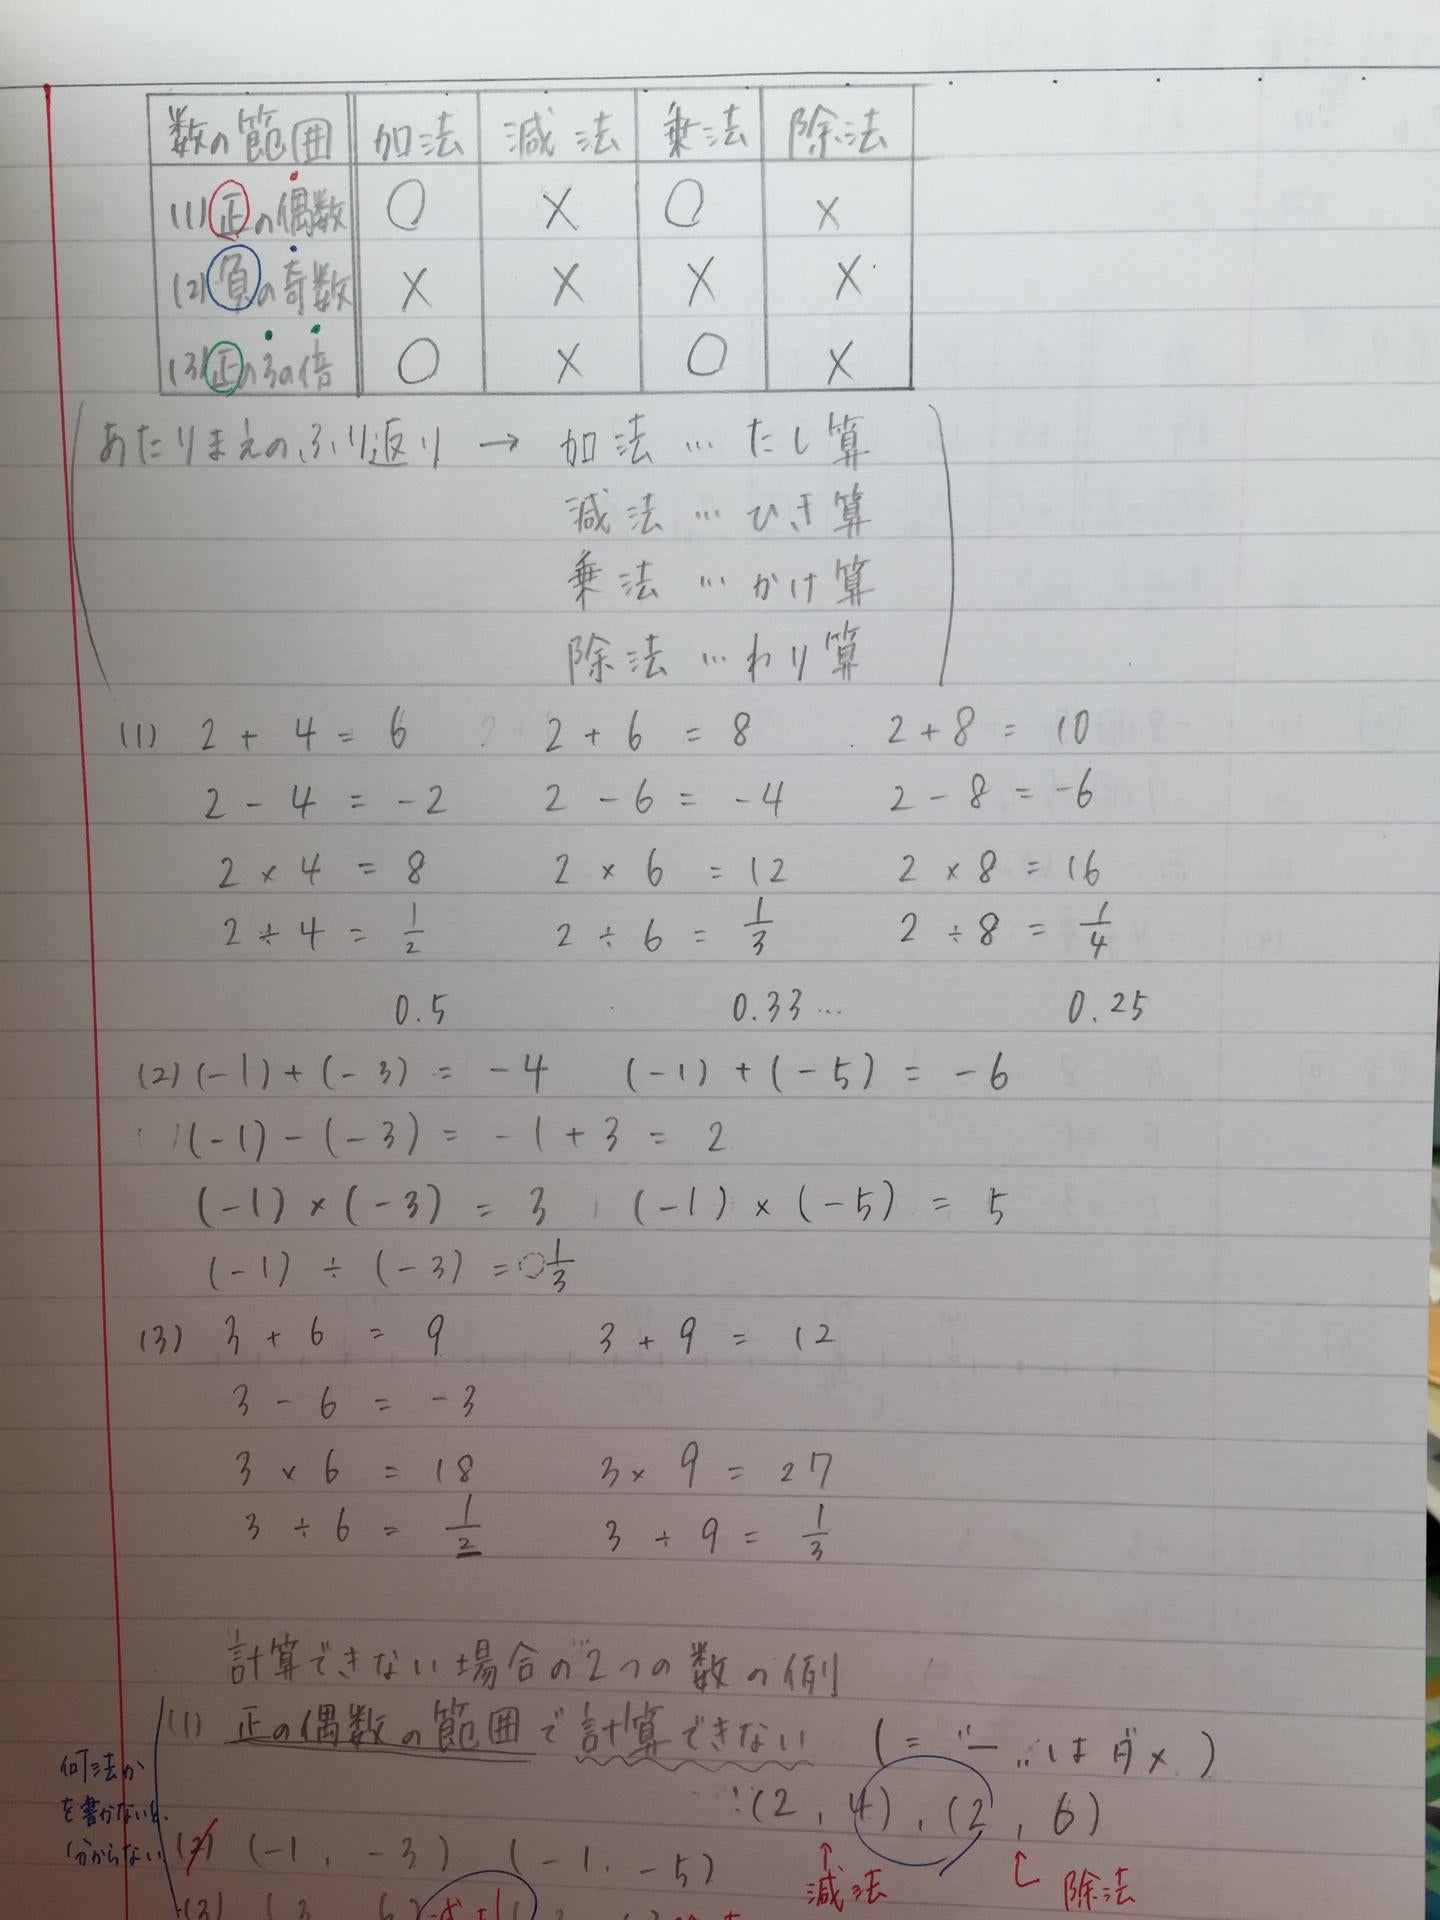 数の範囲 加法 減法 乗法 除法
(1)正の偶数 ○ × ○ ×
(2)負の奇数 × × × ×
(3)正の3の倍 ○ × ○ ×
あたりまえのふり返り → 加法 … たし算
減法 … ひき算
乗法 … かけ算
除法 … わり算
(1) 2 + 4 = 6 2 + 6 = 8 2 + 8 = 10
2 - 4 = -2 2 - 6 = -4 2 - 8 = -6
2 × 4 = 8 2 × 6 = 12 2 × 8 = 16
2 ÷ 4 = 1/2 2 ÷ 6 = 1/3 2 ÷ 8 = 1/4
0.5 0.33… 0.25
(2) (-1)+(-3) = -4 (-1)+(-5) = -6
(-1)-(-3) = -1+3 = 2
(-1)×(-3) = 3 (-1)×(-5) = 5
(-1)÷(-3) = 1/3
(3) 3 + 6 = 9 3 + 9 = 12
3 - 6 = -3
3 × 6 = 18 3 × 9 = 27
3 ÷ 6 = 1/2 3 ÷ 9 = 1/3
計算できない場合の2つの数の例
(1) 正の偶数の範囲で計算できない (= "ー" はダメ)
(2, 4), (2, 6)
減法 除法
何法か
を書かないと、
分からない
(2) (-1, -3) (-1, -5)
(3) (3, 6)